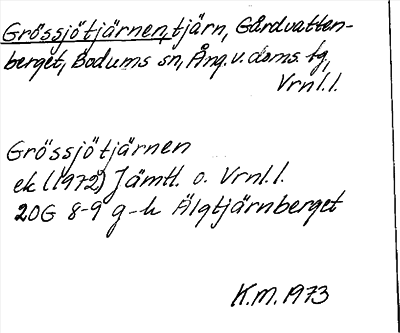 Grössjötjärnen, tjärn, Gårdvatten-
berget, Bodums sn, Ång. v. doms. tg,
Vrnl. l.
Grössjötjärnen
ek (1972) Jämtl. o. Vrnl. l.
20G 8-9 g-h Älgtjärnberget
K.M. 1973